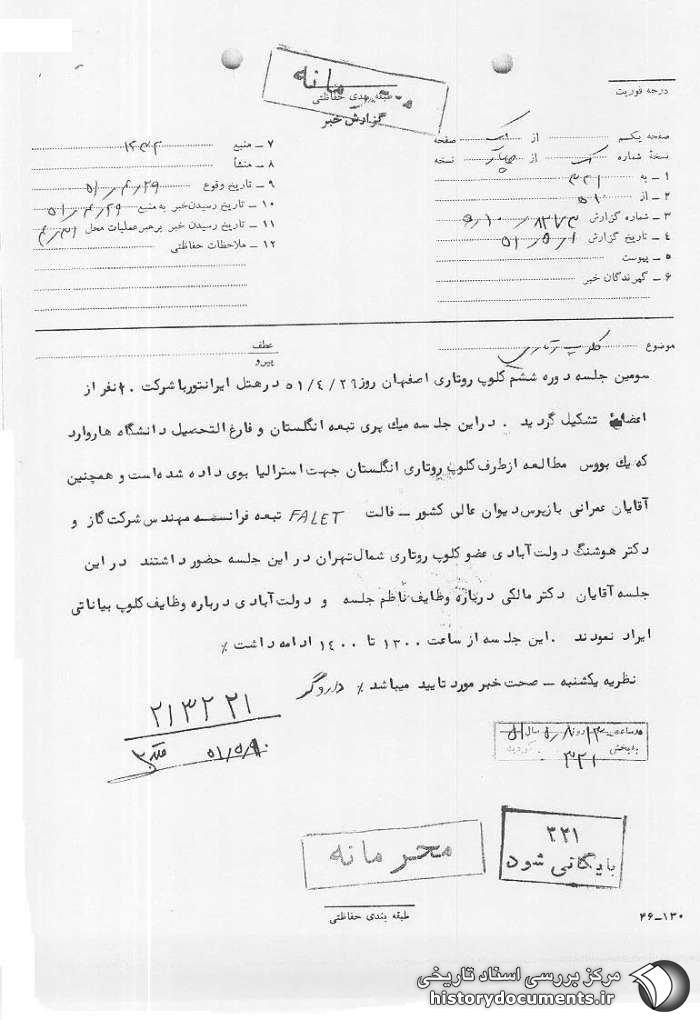 محرمانه
طبقه بندی حفاظتی
گزارش خبر
درجه فوریت
صفحه یکم از یک صفحه
نسخهٔ شماره یک از چهار نسخه
۱ ـ به ۳۲۱
۲ ـ از ۵۱۰
۳ ـ شماره گزارش
۴ ـ تاریخ گزارش ۵۱/۵/۱
۵ ـ پیوست
۶ ـ گیرندگان خبر
۷ ـ منبع
۸ ـ منشأ
۹ ـ تاریخ وقوع ۵۱/۴/۲۹
۱۰ ـ تاریخ رسیدن خبر به منبع ۵۱/۴/۲۹
۱۱ ـ تاریخ رسیدن خبر برهبر عملیات محل ۴/۳۱
۱۲ ـ ملاحظات حفاظتی
موضوع کلوپ رتاری
عطف
پیرو
سومین جلسه دوره ششم کلوپ روتاری اصفهان روز ۵۱/۴/۲۹ در هتل ایرانتور با شرکت نفر از
اعضاء تشکیل گردید . در این جلسه میک پری تبعه انگلستان و فارغ التحصیل دانشگاه هاروارد
که یک بورس مطالعه از طرف کلوپ روتاری انگلستان جهت استرالیا بوی داده شده است و همچنین
آقایان عمرانی بازپرس دیوان عالی کشور ـ فالت FALET تبعه فرانسه مهندس شرکت گاز و
دکتر هوشنگ دولت آبادی عضو کلوپ روتاری شمال تهران در این جلسه حضور داشتند در این
جلسه آقایان دکتر مالکی درباره وظایف ناظم جلسه و دولت آبادی درباره وظایف کلوپ بیاناتی
ایراد نمودند . این جلسه از ساعت ۱۳۰۰ تا ۱۴۰۰ ادامه داشت ٪
نظریه یکشنبه ـ صحت خبر مورد تایید میباشد ٪ داروگر
۲۱۳۲۲۱
۳۲۱
۳۲۱
بایگانی شود
محرمانه
طبقه بندی حفاظتی
۲۶ـ۱۳۰
مرکز بررسی اسناد تاریخی
historydocuments.ir